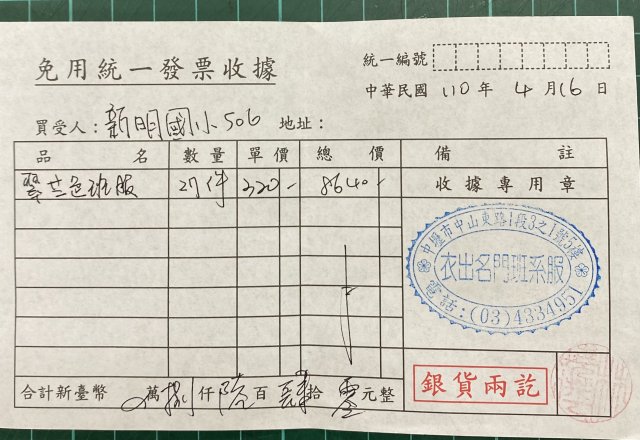 免用統一發票收據
統一編號
中華民國 110 年 4 月 16 日
買受人：新明國小506 地址：
品名 數量 單價 總價 備註
班服 27件 320- 8640- 收據專用章
中壢市中山東路1段3之1號5樓
衣出名門班系服
電話：(03)4334951
合計新臺幣 萬捌仟陸百肆拾零元整
銀貨兩訖